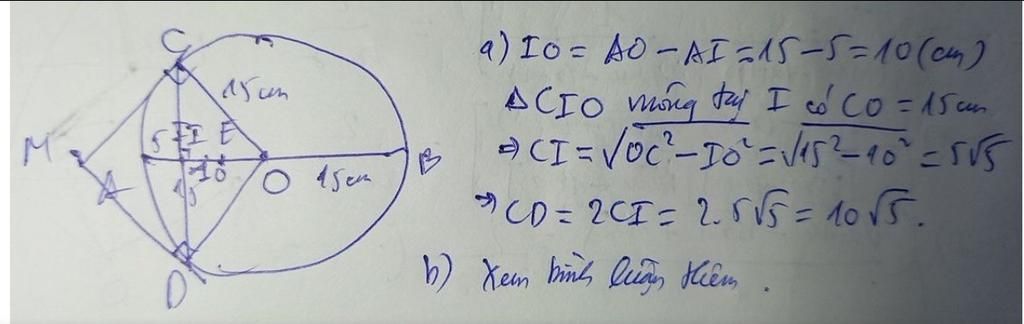 C
15cm
M
5 I E
A
10
O
15cm
B
15
D
a) IO = AO - AI = 15 - 5 = 10 (cm)
Δ CIO vuông tại I có CO = 15cm
⇒ CI = √OC² - IO² = √15² - 10² = 5√5
→ CD = 2CI = 2. 5√5 = 10√5.
b) Xem bình luận thêm.